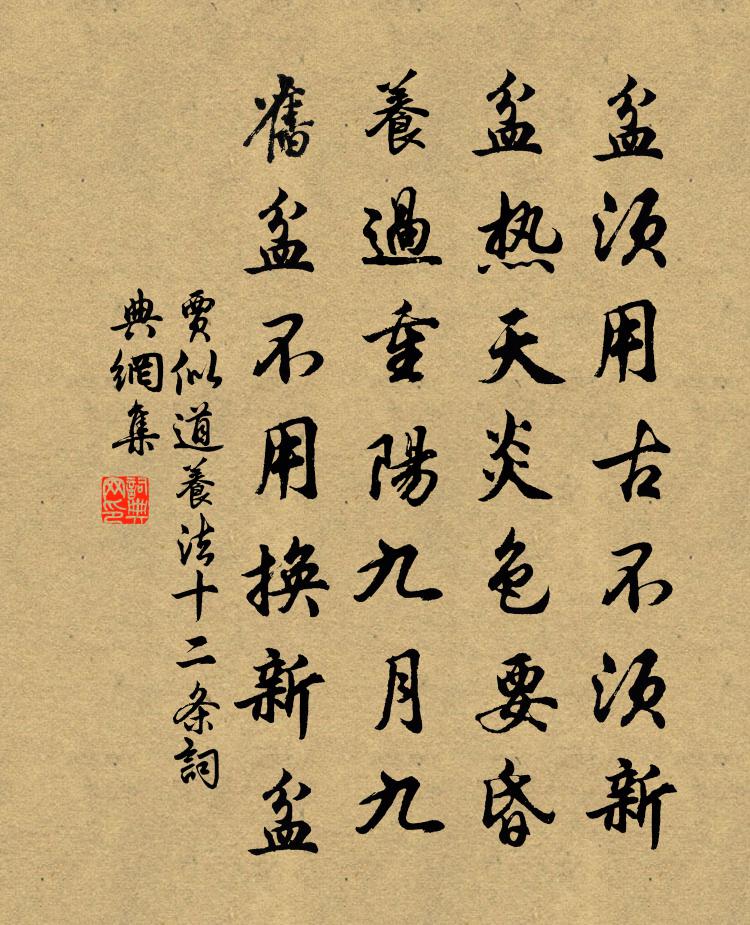 盆須用古不須新
盆热天炎色要昏
養過重陽九月九
舊盆不用換新盆
賈似道養法十二条詞
典網集
詞典
网印